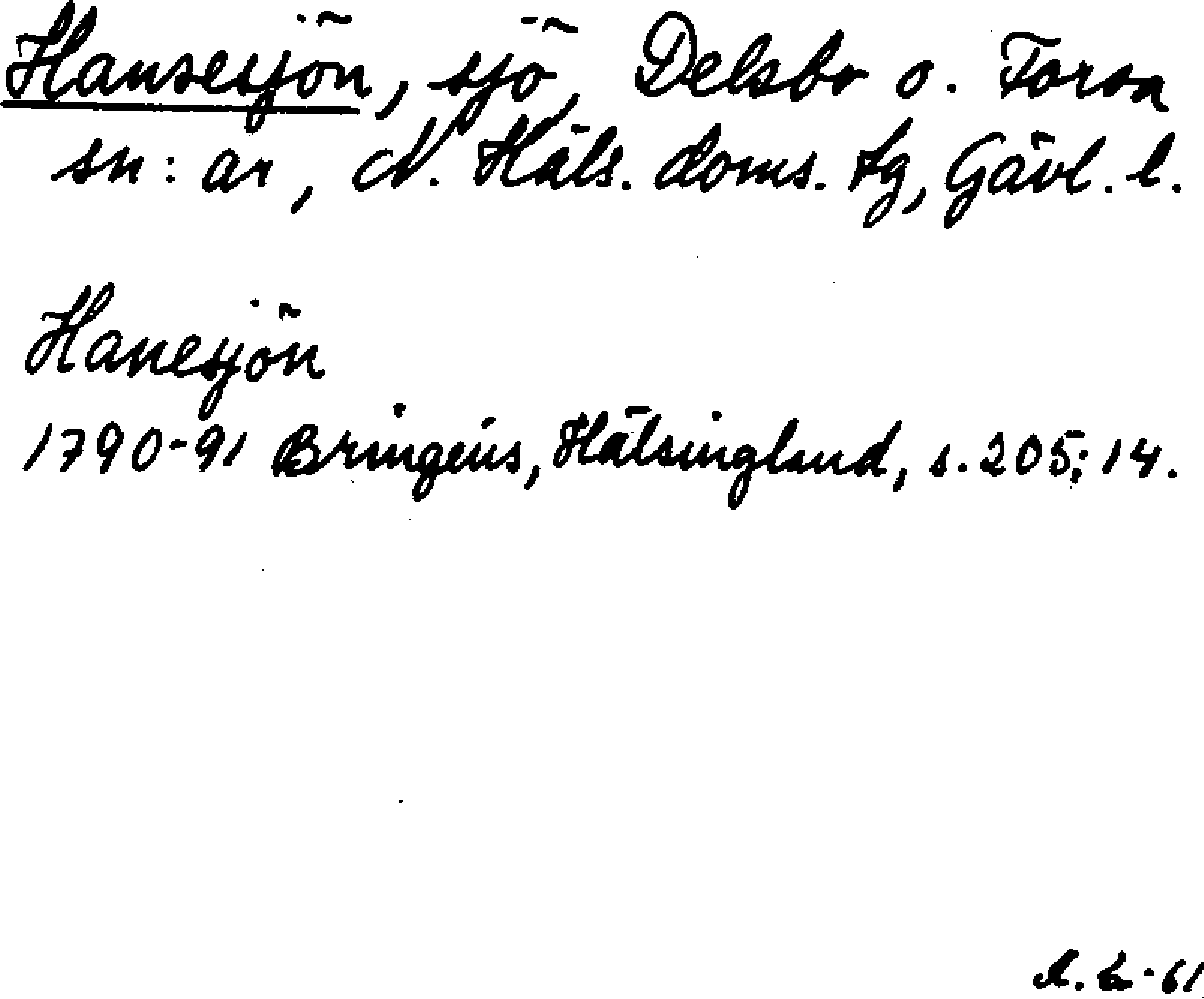 Hansesjön, sjö, Delsbo o. Forsa
sn:ar, N. Häls. doms. tg, Gävl. l.
Hanesjön
1790-91 Bringéus, Hälsingland, s. 205; 14.
61